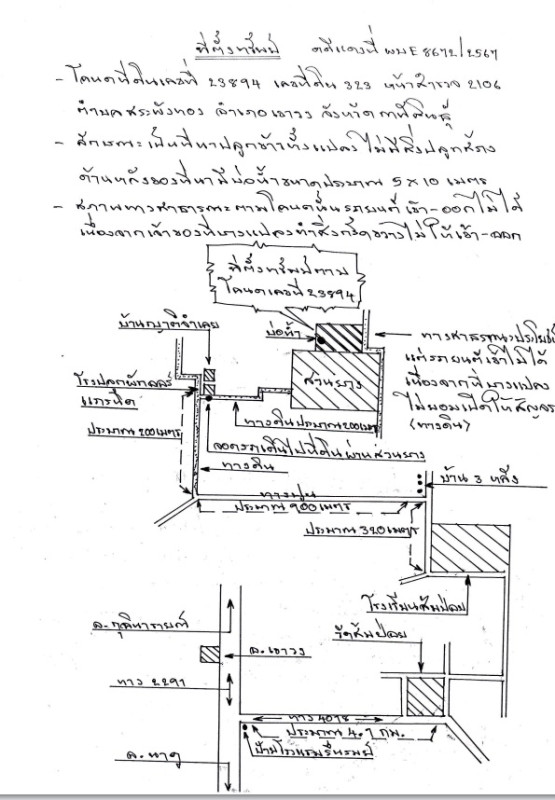 ที่ตั้งทรัพย์ คดีแดงที่ ผบE 8672/2567
- โฉนดที่ดินเลขที่ 23894 เลขที่ดิน 323 หน้าสำรวจ 2106
ตำบลสระพังทอง อำเภอเขาวง จังหวัดกาฬสินธุ์
- ลักษณะเป็นที่นาปลูกข้าวทั้งแปลง ไม่มีสิ่งปลูกสร้าง
ด้านหลังของที่นามีบ่อน้ำขนาดประมาณ 5 x 10 เมตร
- สภาพทางสาธารณะตามโฉนดนั้นรถยนต์ เข้า-ออกไม่ได้
เนื่องจากเจ้าของที่บางแปลงทำสิ่งกีดขวางไม่ให้เข้า-ออก
ที่ตั้งทรัพย์ตาม
โฉนดเลขที่ 23894
บ้านญาติจำเลย
บ่อน้ำ
ทางสาธารณประโยชน์
แต่รถยนต์เข้าไม่ได้
เนื่องจากที่บางแปลง
ไม่ยอมเปิดให้สัญจร
(ทางดิน)
สวนยาง
โรงปลูกผัก
ประมาณ 200 เมตร
ทางดินประมาณ 200 เมตร
จอดรถเดินไปที่ดินผ่านสวนยาง
ทางดิน
บ้าน 3 หลัง
ทางปูน
ประมาณ 900 เมตร
ประมาณ 320 เมตร
โรงเรียนส้มป่อย
อ.กุฉินารายณ์
วัดส้มป่อย
อ.เขาวง
ทาง 2291
ทาง 4018
ประมาณ 4.7 กม.
ป้ายโรงแรมรื่นรมย์
อ.นาคู